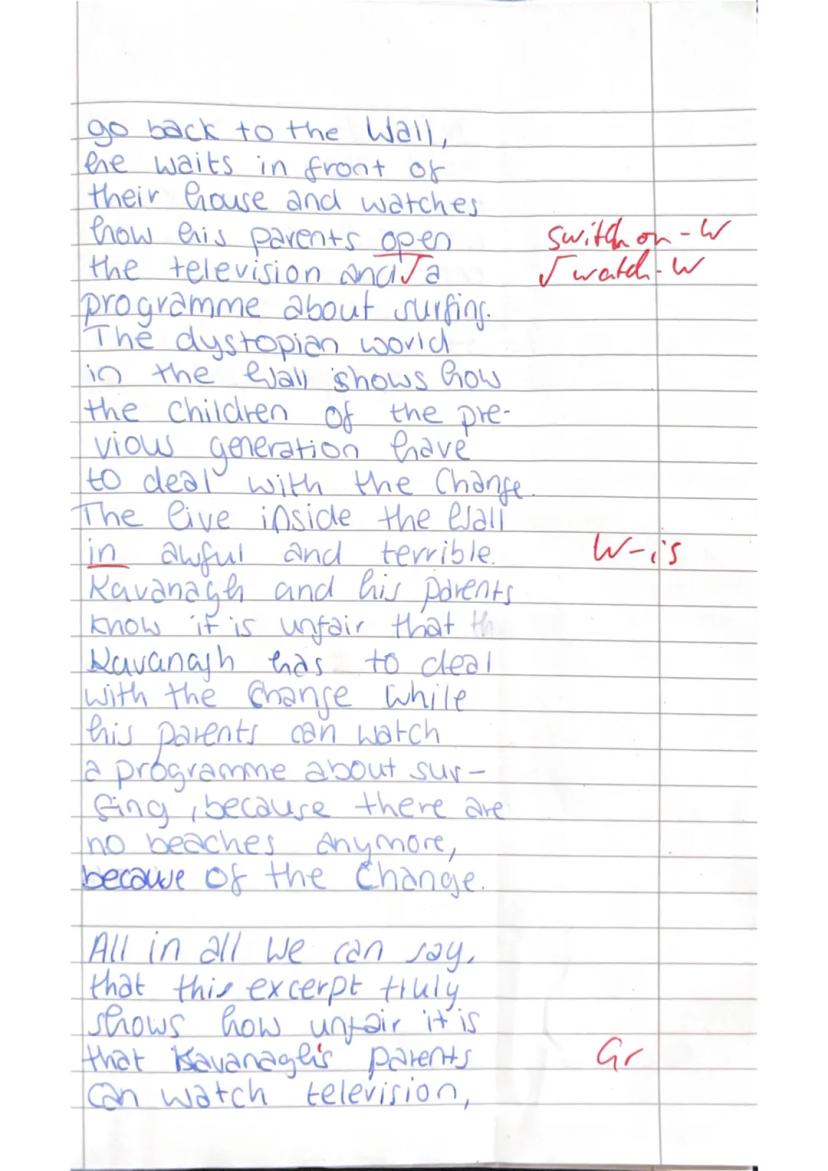 go back to the Wall,
he waits in front of
their house and watches
how his parents open switch on - W
the television and √ a √ watch - W
programme about surfing.
The dystopian world
in the Wall shows how
the children of the pre-
vious generation have
to deal with the Change.
The live inside the Wall
in awful and terrible. W - is
Kavanagh and his parents
know it is unfair that th
Kavanagh has to deal
with the Change while
his parents can watch
a programme about sur-
fing, because there are
no beaches anymore,
because of the Change.
All in all we can say,
that this excerpt truly
shows how unfair it is
that Kavanagh's parents Gr
can watch television,